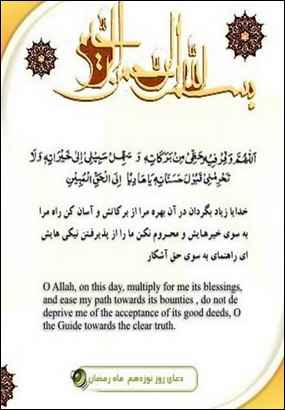 بسم الله الرحمن الرحیم
اَللّهُمَّ وَفِّر فیهِ حَظّی مِن بَرَکاتِهِ وَ سَهِّل سَبیلی اِلی خَیراتِهِ وَلا
تَحرِمنی قَبُولَ حَسَناتِهِ یا هادِیاً اِلَی الحَقِّ المُبینِ
خدایا زیاد بگردان در آن بهره مرا از برکاتش و آسان کن راه مرا
به سوی خیرهایش و محروم نکن ما را از پذیرفتن نیکی هایش
ای راهنمای به سوی حق آشکار
O Allah, on this day, multiply for me its blessings,
and ease my path towards its bounties , do not de
deprive me of the acceptance of its good deeds, O
the Guide towards the clear truth.
دعای روز نوزدهم ماه رمضان